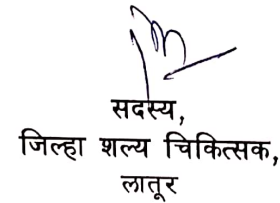 सदस्य,
जिल्हा शल्य चिकित्सक,
लातूर